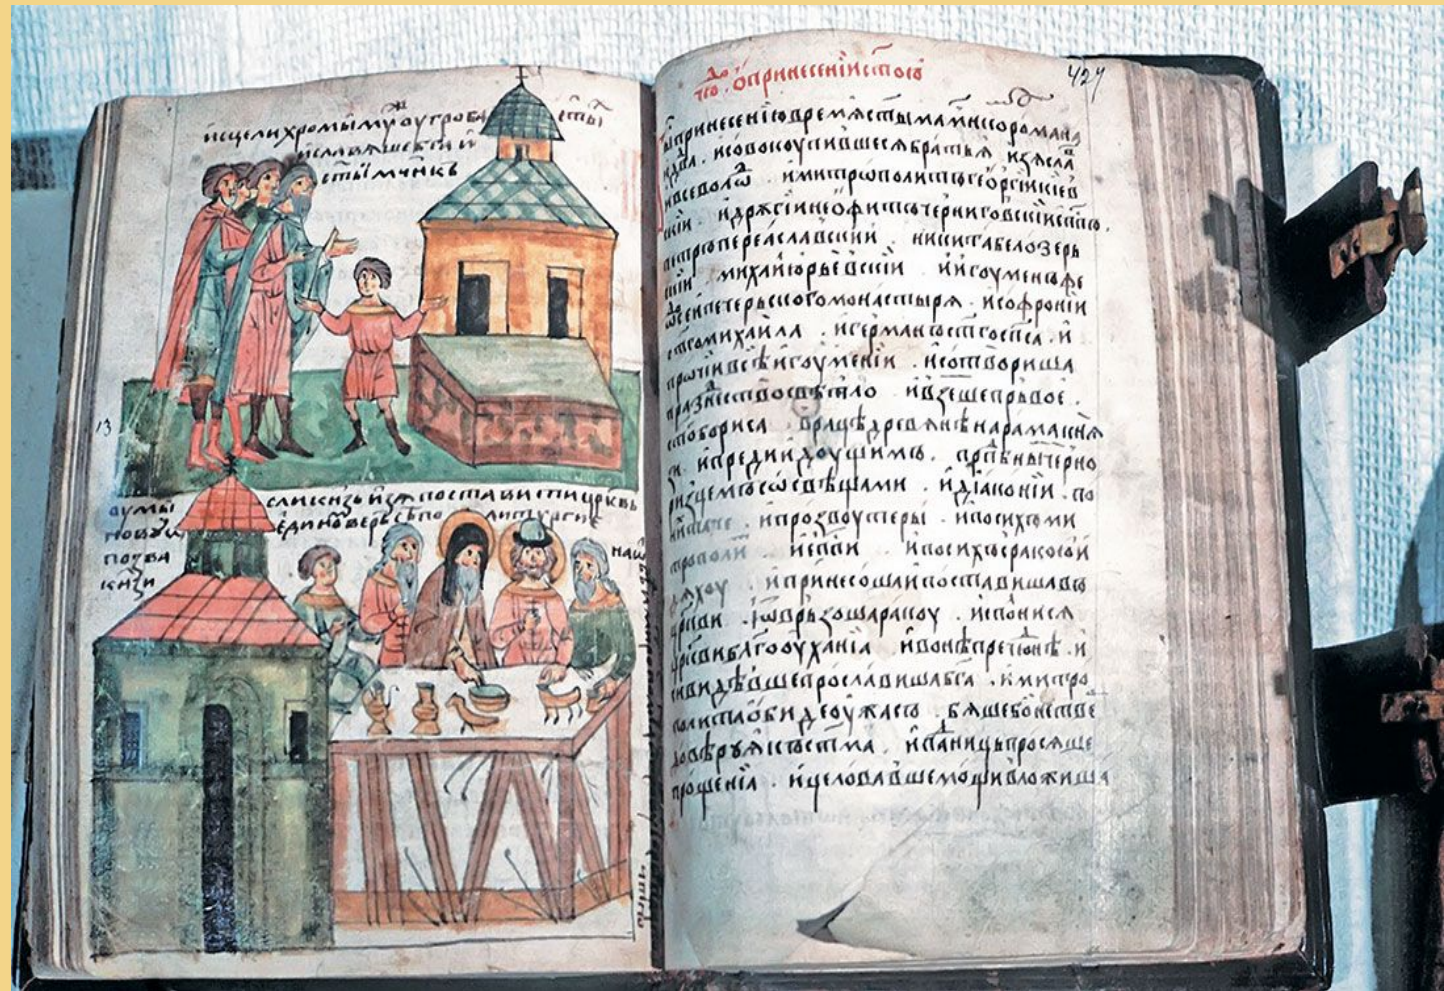 исцели хромы му оу гроба сты
и славяше ба и
сты мчнкъ
13
оумы сли кнзь изя поставити црквь
новую единоверсе по литургие
позва наш
кнзи
о принесении стою
427
принесению время стыма мчнкома романа
и двда . и совокоупившеся братья изясла
и всеволѡ . и митрополитъ георгии киев
скии . и дрꙋгiи неофитъ черниговскiи
петръ переаславскии . никита белозерь
скiи михаи юрьевскiи и игоумени фе
ѡсеи петерьского монастыря . и софронiи
стго михаила . и германъ стго спса . и
прочiи вси игоуменiи . и сотвориша
празнество свѣтло и взеше првое .
бориса в рацѣ древянѣ на рама кнѧ
зи . и пред идоущимъ . прпбныѧ черно
ризцемъ со свѣщами . и дiаконiи . по
и прозвоутеры . и по сихъ ми
трополи и еппи и по сихъ с ракою
ꙗхоу и принесоша и поставиша въ
цркви . i ѿврьзоша ракоу . исполнися
цркви благооуханiа и вонѣ пречюднѣ . и
се видѣвше прославиша бга . и митро
полита обиде оужасъ бяше бо не тве
до вѣруѧ къ стма . и падъ ниць прося ше
прощенiа . и целовавше мощи вложиша